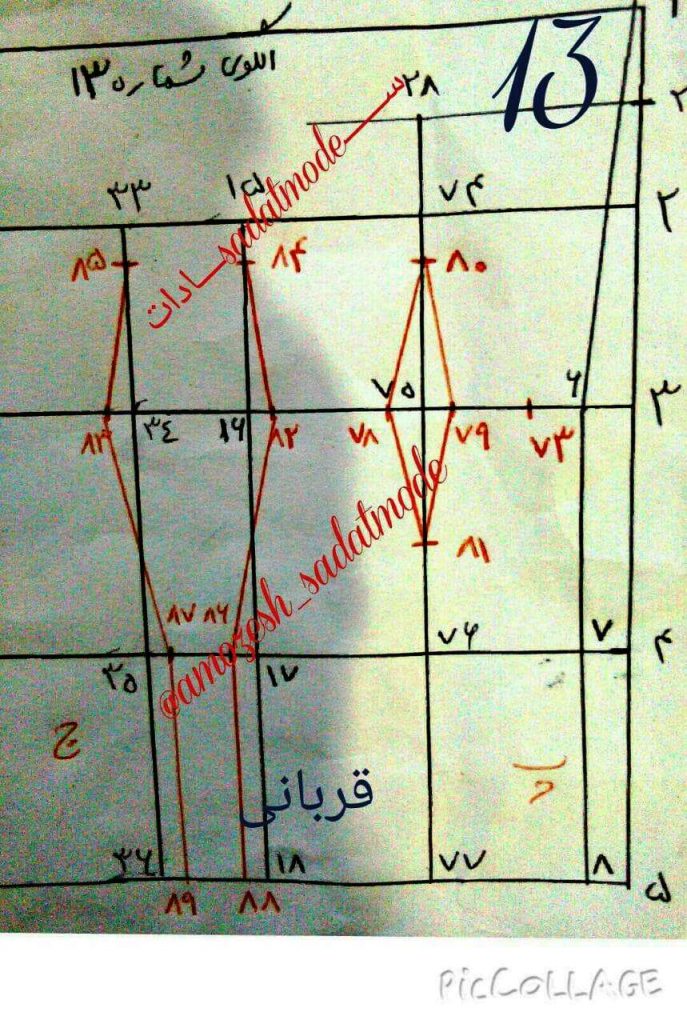 13
الگوی شماره ۱۳
۲
۲۸
۳۳
۱۵
۷۴
۲
۸۵
۸۴
۸۰
۷۵
۶
۳
۸۳
۳٤
۱۶
۸۲
۷۸
۷۹
۷۳
۸۱
۸۷
۸۶
۷۶
۷
۴
۳۵
۱۷
ســـــــsadatmodeـــــادات
@amozesh_sadatmode
ج
قربانی
پ
۳۶
۱۸
۷۷
۸
۵
۸۹
۸۸
PicCollage